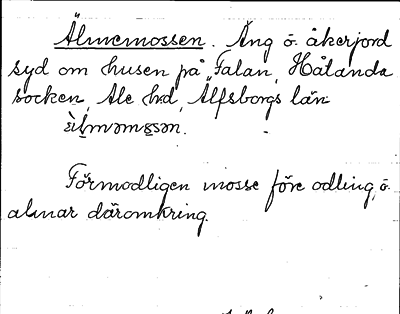 Älmemossen. Äng o. åkerjord
syd om husen på Falan, Hålanda
socken, Ale hd, Älfsborgs län
Förmodligen mosse före odling, o.
almar däromkring.